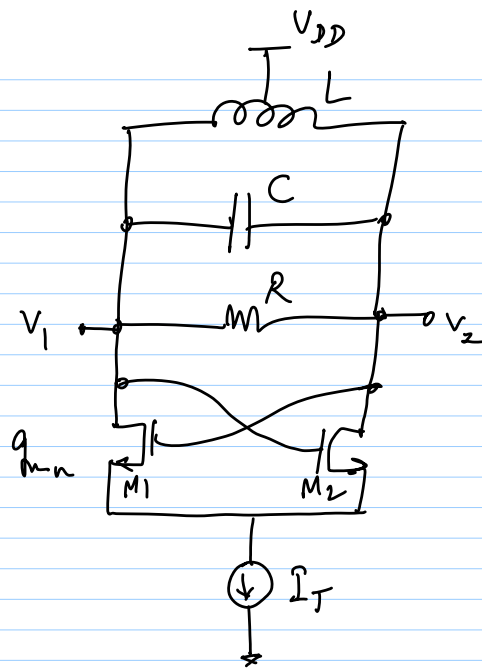 V_DD
L
C
R
V_1
V_2
g_mn
M1
M2
I_T